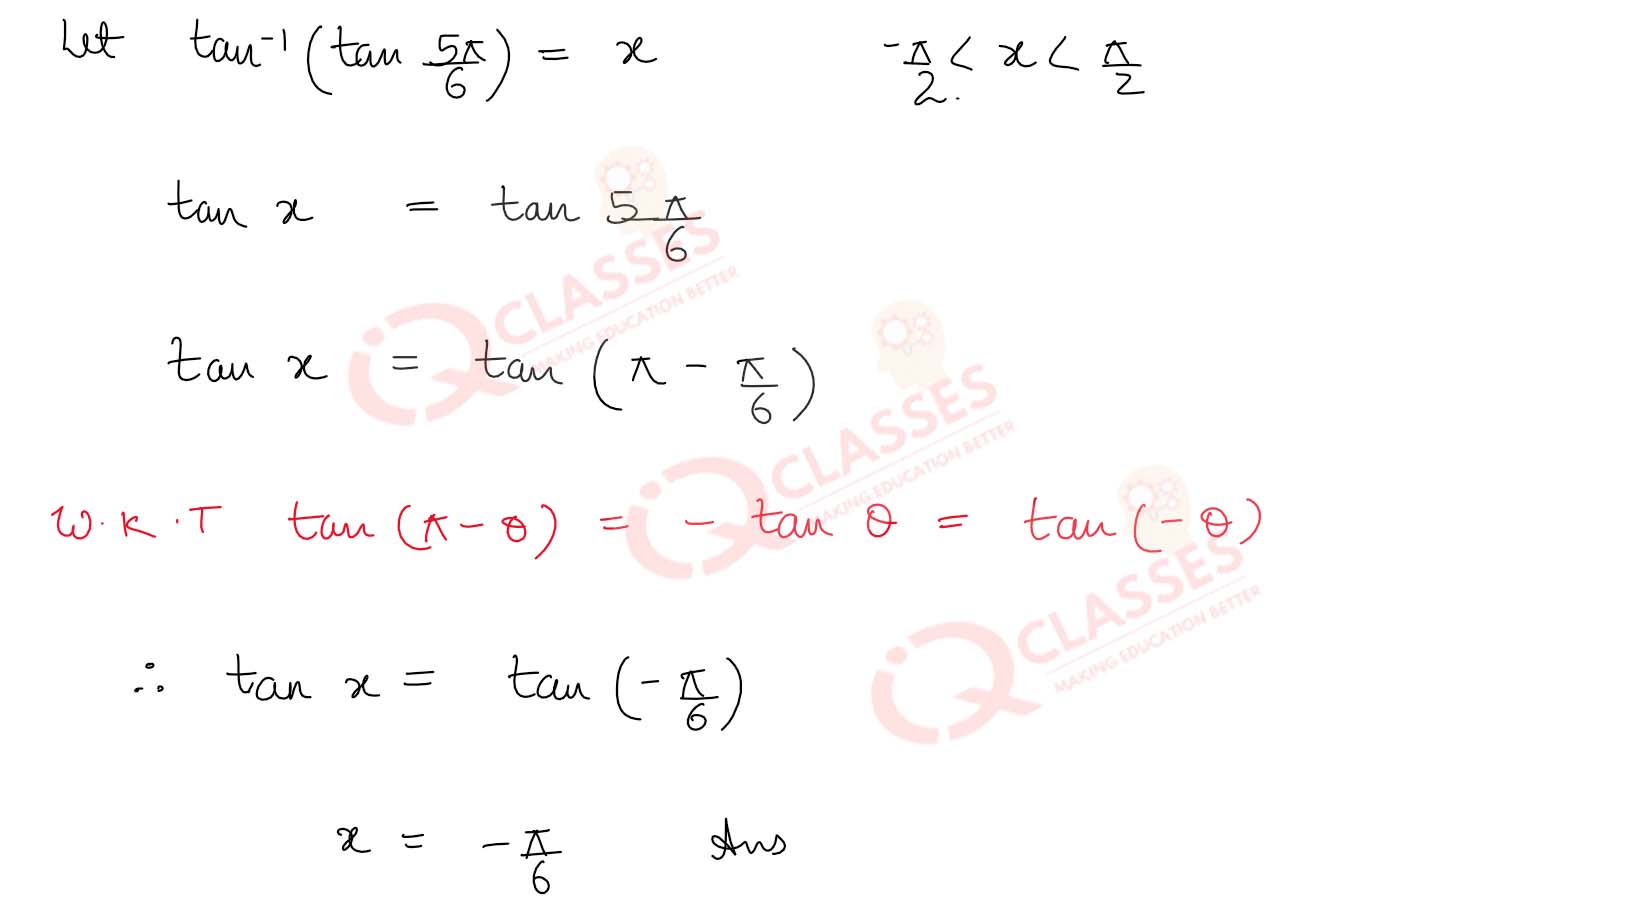 Let tan⁻¹(tan 5π/6) = x -π/2 < x < π/2
tan x = tan 5π/6
tan x = tan (π - π/6)
W.K.T tan (π - θ) = - tan θ = tan (- θ)
∴ tan x = tan (- π/6)
x = - π/6 Ans
iQ CLASSES
MAKING EDUCATION BETTER
iQ CLASSES
MAKING EDUCATION BETTER
iQ CLASSES
MAKING EDUCATION BETTER